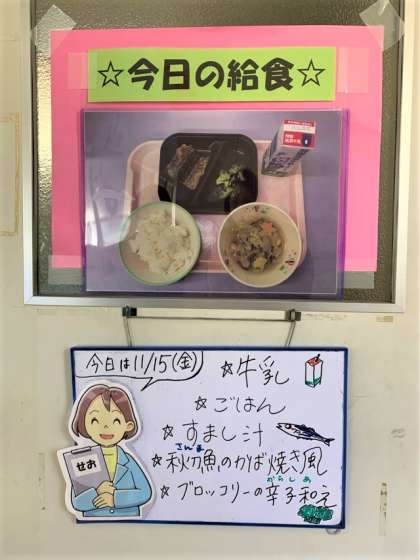 ☆今日の給食☆
今日は11/15(金)
☆牛乳
☆ごはん
☆すまし汁
さんま
☆秋刀魚のかば焼き風
からしあ
☆ブロッコリーの辛子和え
せお